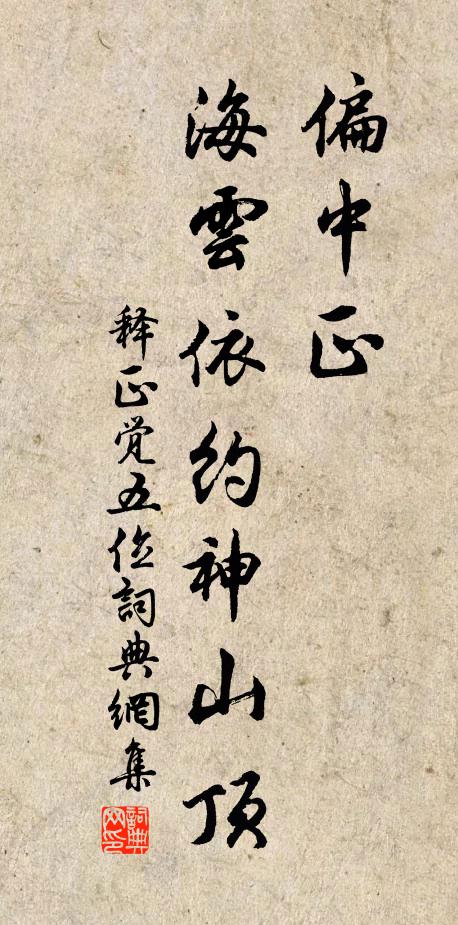 偏中正
海雲依约神山頂
释正覚五位詞典網集
詞典網印